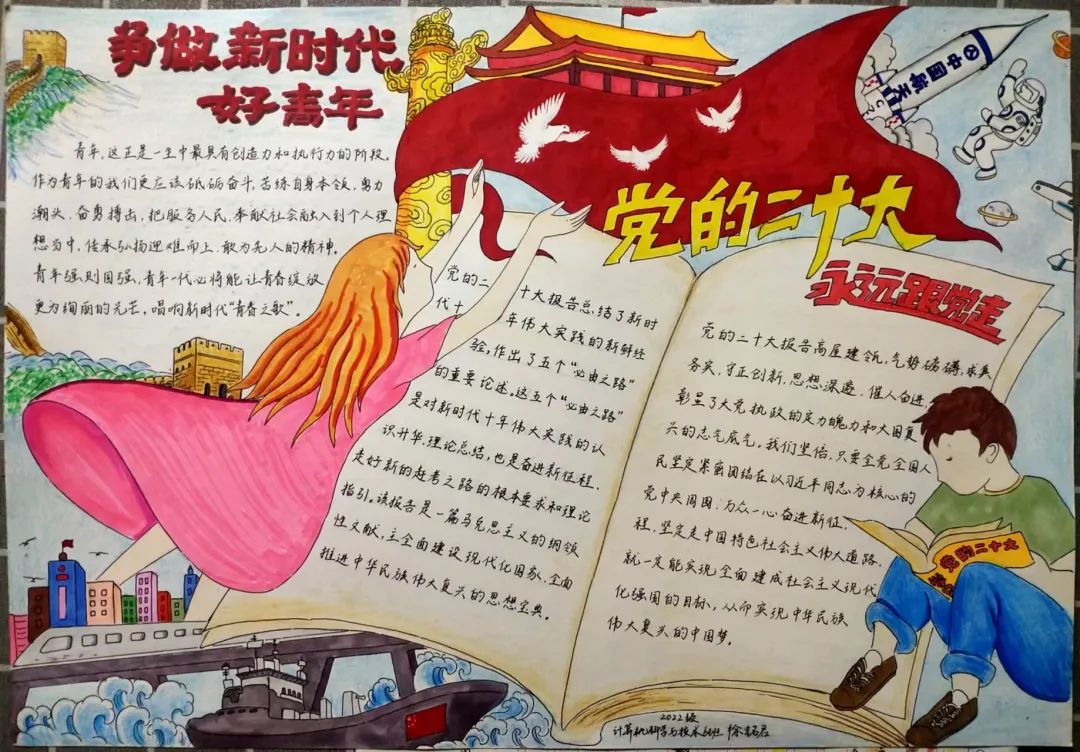 争做新时代
好青年
青年，这正是一生中最具有创造力和执行力的阶段。
作为青年的我们更应该砥砺奋斗，苦练自身本领，勇力
潮头、奋勇搏击，把服务人民、奉献社会融入到个人理
想当中，传承弘扬迎难而上、敢为先人的精神。
青年强则国强，青年一代必将能让青春绽放
更为绚丽的光芒，唱响新时代“青春之歌”。
中国航天
党的二十大
永远跟党走
党的二十大报告总结了新时
代十年伟大实践的新鲜经
验，作出了五个“必由之路”
的重要论述。这五个“必由之路”
是对新时代十年伟大实践的认
识升华、理论总结，也是奋进新征程、
走好新的赶考之路的根本要求和理论
指引。该报告是一篇马克思主义的纲领
性文献，主全面建设现代化国家、全面
推进中华民族伟大复兴的思想宝典。
党的二十大报告高屋建瓴，气势磅礴，求真
务实，守正创新，思想深邃、催人奋进，
彰显了大党执政的定力魄力和大国复
兴的志气底气。我们坚信，只要全党全国人
民坚定紧密团结在以习近平同志为核心的
党中央周围，万众一心奋进新征
程，坚定走中国特色社会主义伟大道路，
就一定能实现全面建成社会主义现代
化强国的目标，从而实现中华民族
伟大复兴的中国梦。
党的二十大
2022级
计算机科学与技术